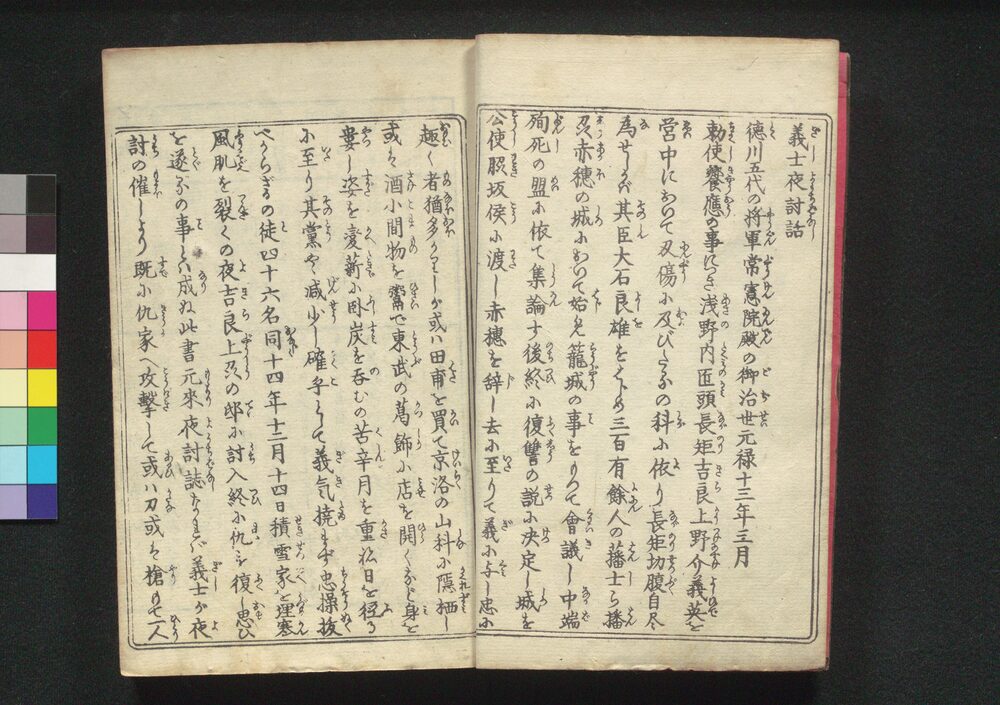 義士夜討話
徳川五代の将軍常憲院殿の御治世元禄十三年三月
勅使饗應の事につき浅野内匠頭長矩吉良上野介義英を
営中において刄傷に及びしかの科に依り長矩切腹自尽
為せしかバ其臣大石良雄をはじめ三百有餘人の藩士ら播
刕赤穂の城において始め籠城の事をもつて會議し中端
殉死の盟に依て集論す後終に復讐の説に决定し城を
公使脇坂侯に渡し赤穂を辞し去に至りて義に与し忠に
趣く者猶多かりしが或ハ田甫を買て京洛の山科に隠栖し
或は酒小間物を齎て東武の葛飾に店を開くなど身を
妻し姿を変薪に臥炭を呑むの苦辛月を重ね日を経る
に至り其黨やゝ減少し確乎として義気撓まず忠操抜
べからざるの徒四十六名同十四年十二月十四日積雪家を埋寒
風肌を裂くの夜吉良上刕の邸に討入終に仇を復し思ひ
を遂るの事とハ成ぬ此書元來夜討誌なれバ義士が夜
討の催しより既に仇家へ攻撃して或ハ刀或は槍もて一人